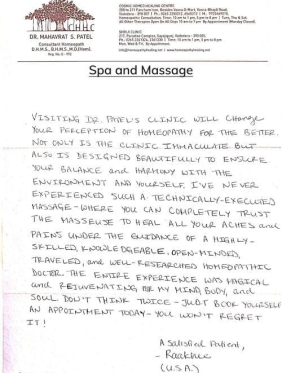 CHHC
DR. MAHAVRAT S. PATEL
Consultant Homeopath
D.H.M.S., D.H.M.S.,M.D.(Hom).
COSMIC HOMEO HEALING CENTRE
Spa and Massage
VISITING DR. PATEL'S CLINIC WILL CHANGE
YOUR PERCEPTION OF HOMEOPATHY FOR THE BETTER.
NOT ONLY IS THE CLINIC IMMACULATE BUT
ALSO IS DESIGNED BEAUTIFULLY TO ENSURE
YOUR BALANCE AND HARMONY WITH THE
ENVIRONMENT AND YOURSELF. I'VE NEVER
EXPERIENCED SUCH A TECHNICALLY-EXECUTED
MASSAGE-WHERE YOU CAN COMPLETELY TRUST
THE MASSEUSE TO HEAL ALL YOUR ACHES AND
PAINS UNDER THE GUIDANCE OF A HIGHLY-
SKILLED, KNOWLEDGEABLE, OPEN-MINDED,
TRAVELED, AND WELL-RESEARCHED HOMEOPATHIC
DOCTOR. THE ENTIRE EXPERIENCE WAS MAGICAL
AND REJUVENATING FOR MY MIND, BODY, AND
SOUL. DON'T THINK TWICE - JUST BOOK YOURSELF
AN APPOINTMENT TODAY - YOU WON'T REGRET
IT!
A Satisfied Patient,
(U.S.A.)